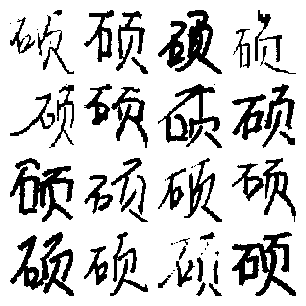 硕硕硕硕
硕硕硕硕
硕硕硕硕
硕硕硕硕